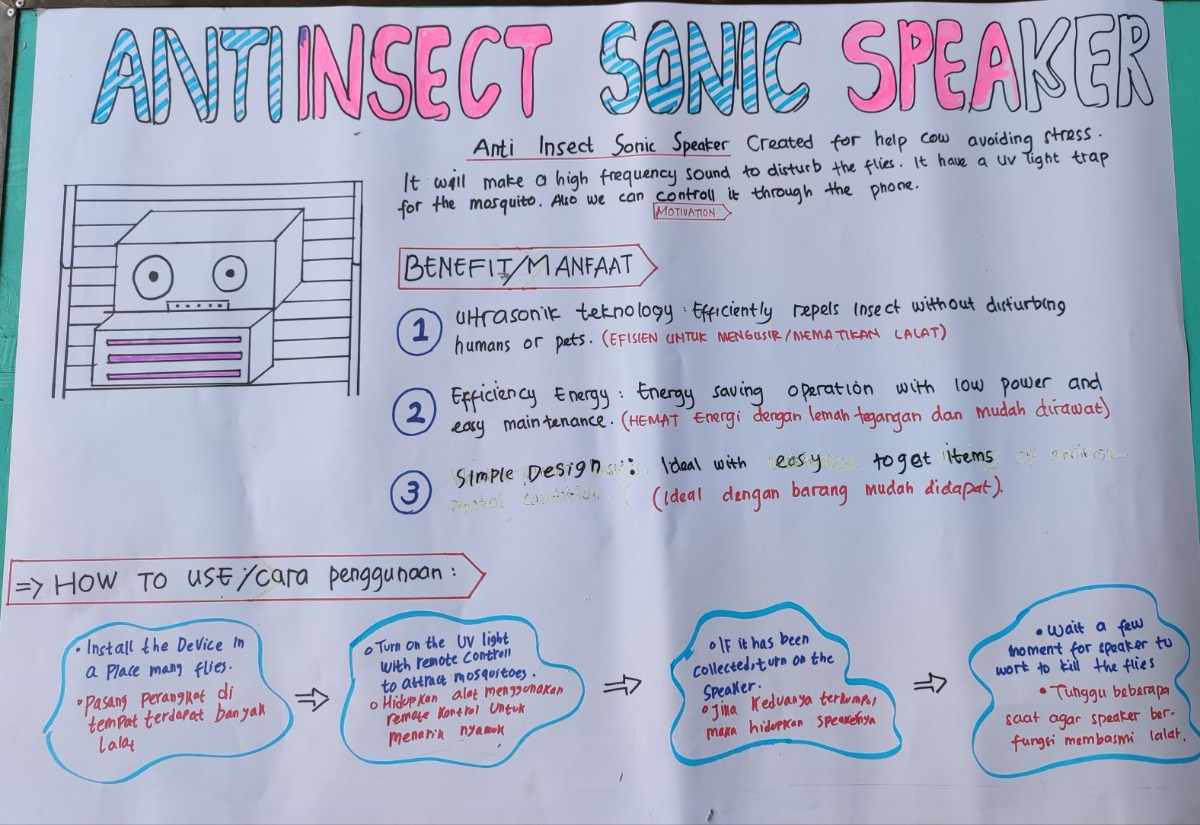 ANTI INSECT SONIC SPEAKER
Anti Insect Sonic Speaker Created for help cow avoiding stress.
It will make a high frequency sound to disturb the flies. It have a UV light trap
for the mosquito. Also we can controll it through the phone.
MOTIVATION
BENEFIT/MANFAAT
1 Ultrasonik teknology : Efficiently repels Insect without disturbing
humans or pets. (EFISIEN UNTUK MENGUSIR/MEMATIKAN LALAT)
2 Efficiency Energy : Energy saving operation with low power and
easy maintenance. (HEMAT Energi dengan lemah tegangan dan Mudah dirawat)
3 Simple Design : Ideal with easy to get items
(Ideal dengan barang mudah didapat).
=> HOW TO USE/cara penggunaan :
• Install the Device In
a Place many flies.
• Pasang Perangkat di
tempat terdapat banyak
lalat
⇒
• Turn on the UV light
with remote controll
to attract mosquitoes.
• Hidupkan alat menggunakan
remote kontrol untuk
menarik nyamuk
⇒
• If it has been
collected, turn on the
Speaker.
• Jika Keduanya terkumpul
maka hidupkan speakernya
⇒
• Wait a few
moment for speaker to
work to kill the flies
• Tunggu beberapa
saat agar speaker ber-
fungsi membasmi lalat.